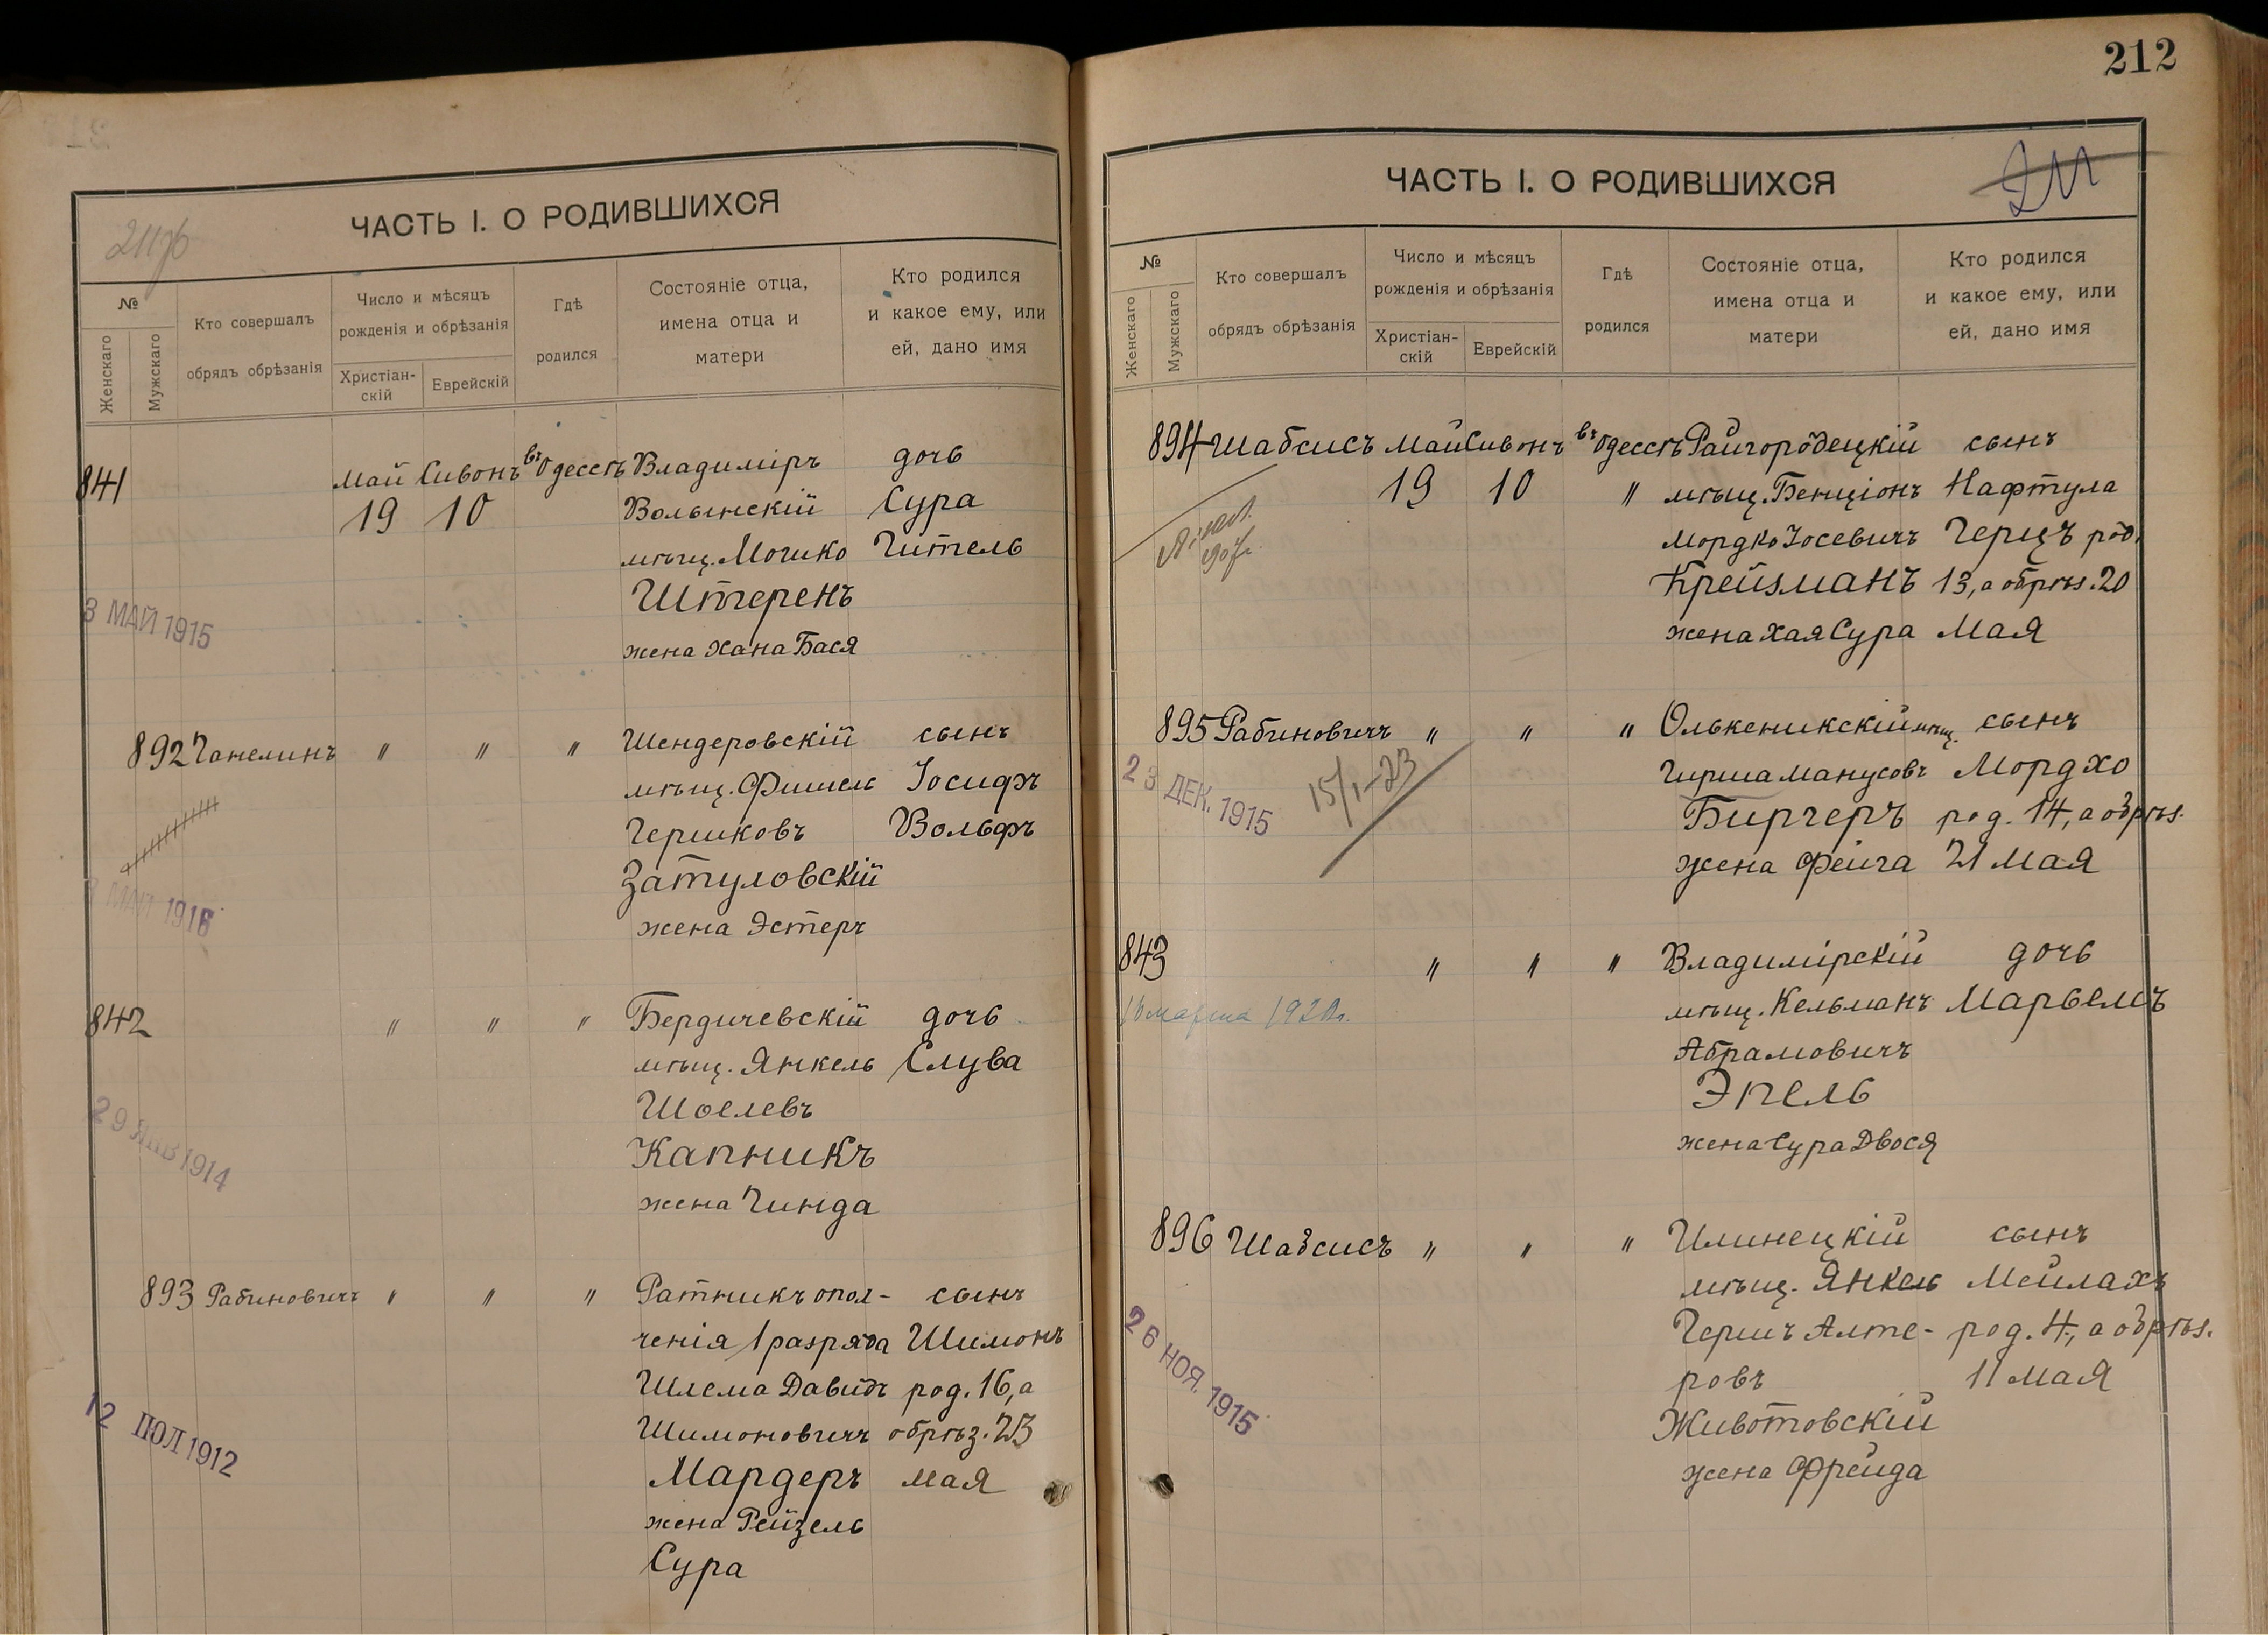 212
ЧАСТЬ I. О РОДИВШИХСЯ
№
Женскаго
Мужскаго
Кто совершалъ
обрядъ обрѣзанія
Число и мѣсяцъ
рожденія и обрѣзанія
Христіан-
скій
Еврейскій
Гдѣ
родился
Состояніе отца,
имена отца и
матери
Кто родился
и какое ему, или
ей, дано имя
841 Май Сивонъ въ Одессѣ Владиміръ дочь
19 10 Волынскій Сура
мѣщ. Мошко Гитель
Штеренъ
3 МАЙ 1915
жена Хана Бася
892 Ганелинъ " " " Шендеровскій сынъ
мѣщ. Фишель Іосифъ
Гершковъ Вольфъ
Затуловскій
МАЙ 1916
жена Эстеръ
842 " " " Бердичевскій дочь
мѣщ. Янкель Слува
Шоелевъ
29 ЯНВ 1914
Капникъ
жена Гинда
893 Рабиновичъ " " " Ратникъ опол- сынъ
ченія 1 разряда Шимонъ
Шлема Давидъ род. 16, а
12 ІЮЛ 1912
Шимоновичъ обрѣз. 23
Мардеръ мая
жена Рейзель
Сура
ЧАСТЬ I. О РОДИВШИХСЯ
№
Женскаго
Мужскаго
Кто совершалъ
обрядъ обрѣзанія
Число и мѣсяцъ
рожденія и обрѣзанія
Христіан-
скій
Еврейскій
Гдѣ
родился
Состояніе отца,
имена отца и
матери
Кто родился
и какое ему, или
ей, дано имя
894 Шабсисъ Май Сивонъ въ Одессѣ Райгородецкій сынъ
19 10 " мѣщ. Бенціонъ Нафтула
Мордко Іосевичъ Герцъ род.
Крейзманъ 13, а обрѣз. 20
жена Хая Сура Мая
895 Рабиновичъ " " " Олькеникскій мѣщ. сынъ
23 ДЕК. 1915
15/I-23
Гирша Манусовъ Мордхо
Биргеръ род. 14, а обрѣз.
жена Фейга 21 Мая
843 " " " Владимірскій дочь
16 марта 192
мѣщ. Кельманъ Марьемъ
Абрамовичъ
Эпель
жена Сура Двося
896 Шабсисъ " " " Илинецкій сынъ
мѣщ. Янкель Мейлахъ
26 НОЯ. 1915
Гершъ Алте- род. 4, а обрѣз.
ровъ 11 мая
Животовскій
жена Фрейда